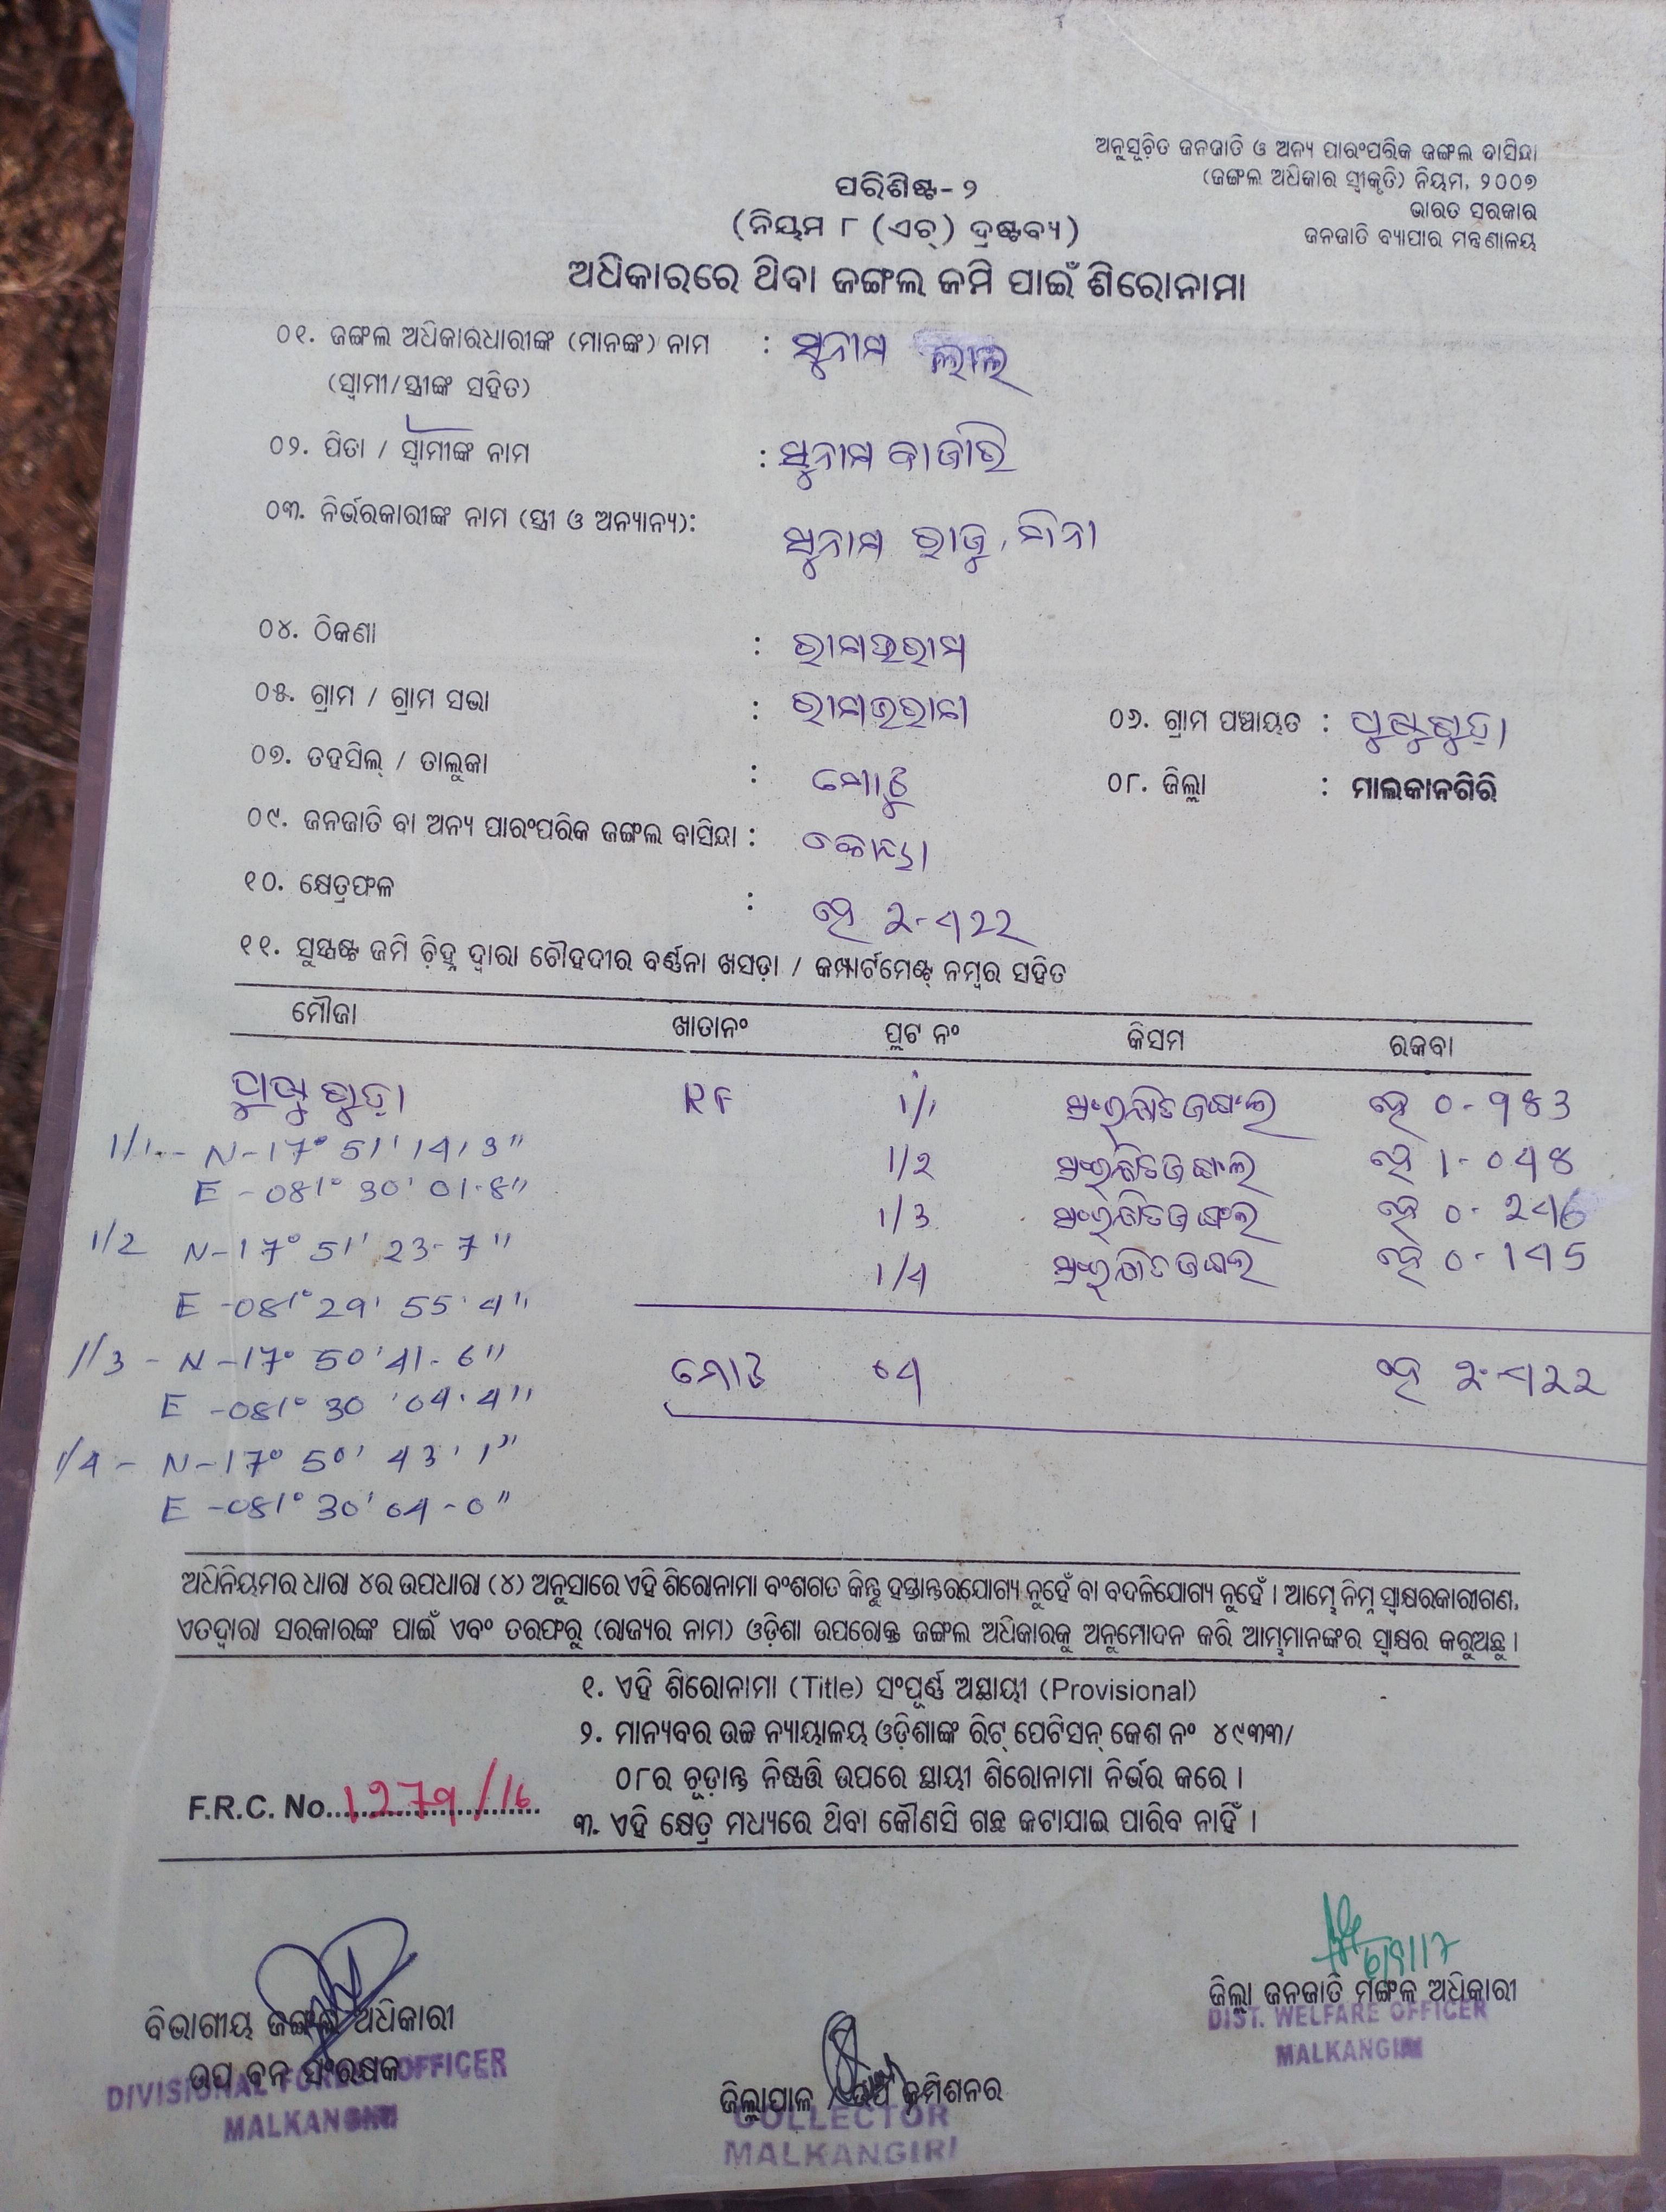 ଅନୁସୂଚିତ ଜନଜାତି ଓ ଅନ୍ୟ ପାରଂପରିକ ଜଙ୍ଗଲ ବାସିନ୍ଦା
(ଜଙ୍ଗଲ ଅଧିକାର ସ୍ୱୀକୃତି) ନିୟମ, ୨୦୦୭
ଭାରତ ସରକାର
ଜନଜାତି ବ୍ୟାପାର ମନ୍ତ୍ରଣାଳୟ
ପରିଶିଷ୍ଟ-୨
(ନିୟମ ୮ (ଏଚ୍) ଦ୍ରଷ୍ଟବ୍ୟ)
ଅଧିକାରରେ ଥିବା ଜଙ୍ଗଲ ଜମି ପାଇଁ ଶିରୋନାମା
୦୧. ଜଙ୍ଗଲ ଅଧିକାରଧାରୀଙ୍କ (ମାନଙ୍କ) ନାମ : ସୁନାମ ଲାଲ
(ସ୍ୱାମୀ/ସ୍ତ୍ରୀଙ୍କ ସହିତ)
୦୨. ପିତା / ସ୍ୱାମୀଙ୍କ ନାମ : ସୁନାମ
୦୩. ନିର୍ଭରକାରୀଙ୍କ ନାମ (ସ୍ତ୍ରୀ ଓ ଅନ୍ୟାନ୍ୟ): ସୁନାମ ରାଜୁ,
୦୪. ଠିକଣା :
୦୫. ଗ୍ରାମ / ଗ୍ରାମ ସଭା : ୦୬. ଗ୍ରାମ ପଞ୍ଚାୟତ :
୦୭. ତହସିଲ୍ / ତାଲୁକା : ମୋଟୁ ୦୮. ଜିଲ୍ଲା : ମାଲକାନଗିରି
୦୯. ଜନଜାତି ବା ଅନ୍ୟ ପାରଂପରିକ ଜଙ୍ଗଲ ବାସିନ୍ଦା : କୋୟା
୧୦. କ୍ଷେତ୍ରଫଳ : ହେ 2-422
୧୧. ସୁସ୍ପଷ୍ଟ ଜମି ଚିହ୍ନ ଦ୍ୱାରା ଚୌହଦୀର ବର୍ଣ୍ଣନା ଖସଡ଼ା / କମ୍ପାର୍ଟମେଣ୍ଟ୍ ନମ୍ବର ସହିତ
ମୌଜା ଖାତାନଂ ପ୍ଲଟ ନଂ କିସମ ରକବା
RF 1/1 ସଂରକ୍ଷିତ ଜଙ୍ଗଲ ହେ 0-983
1/2 ସଂରକ୍ଷିତ ଜଙ୍ଗଲ ହେ 1-048
1/3 ସଂରକ୍ଷିତ ଜଙ୍ଗଲ ହେ 0-246
1/4 ସଂରକ୍ଷିତ ଜଙ୍ଗଲ ହେ 0-145
1/1 - N-17° 51' 14.3"
E -081° 30' 01.8"
1/2 N-17° 51' 23-7"
E -081° 29' 55.4"
1/3 - N-17° 50' 41-6"
E -081° 30' 04.4"
1/4 - N-17° 50' 43.1"
E -081° 30' 04-0"
ମୋଟ 04 ହେ 2-422
ଅଧିନିୟମର ଧାରା ୪ର ଉପଧାରା (୪) ଅନୁସାରେ ଏହି ଶିରୋନାମା ବଂଶଗତ କିନ୍ତୁ ହସ୍ତାନ୍ତରଯୋଗ୍ୟ ନୁହେଁ ବା ବଦଳିଯୋଗ୍ୟ ନୁହେଁ । ଆମ୍ଭେ ନିମ୍ନ ସ୍ୱାକ୍ଷରକାରୀଗଣ,
ଏତଦ୍ୱାରା ସରକାରଙ୍କ ପାଇଁ ଏବଂ ତରଫରୁ (ରାଜ୍ୟର ନାମ) ଓଡ଼ିଶା ଉପରୋକ୍ତ ଜଙ୍ଗଲ ଅଧିକାରକୁ ଅନୁମୋଦନ କରି ଆମ୍ଭମାନଙ୍କର ସ୍ୱାକ୍ଷର କରୁଅଛୁ ।
୧. ଏହି ଶିରୋନାମା (Title) ସଂପୂର୍ଣ୍ଣ ଅସ୍ଥାୟୀ (Provisional)
୨. ମାନ୍ୟବର ଉଚ୍ଚ ନ୍ୟାୟାଳୟ ଓଡ଼ିଶାଙ୍କ ରିଟ୍ ପେଟିସନ୍ କେଶ ନଂ ୪୯୩୩/
୦୮ର ଚୂଡ଼ାନ୍ତ ନିଷ୍ପତ୍ତି ଉପରେ ସ୍ଥାୟୀ ଶିରୋନାମା ନିର୍ଭର କରେ ।
F.R.C. No. 1279/16
୩. ଏହି କ୍ଷେତ୍ର ମଧ୍ୟରେ ଥିବା କୌଣସି ଗଛ କଟାଯାଇ ପାରିବ ନାହିଁ ।
6/9/17
ଜିଲ୍ଲା ଜନଜାତି ମଙ୍ଗଳ ଅଧିକାରୀ
DIST. WELFARE OFFICER
MALKANGIRI
ବିଭାଗୀୟ ଜଙ୍ଗଲ ଅଧିକାରୀ
ଉପ ବନ ସଂରକ୍ଷକ
DIVISIONAL FOREST OFFICER
MALKANGIRI
ଜିଲ୍ଲାପାଳ / ଉପ କମିଶନର
COLLECTOR
MALKANGIRI